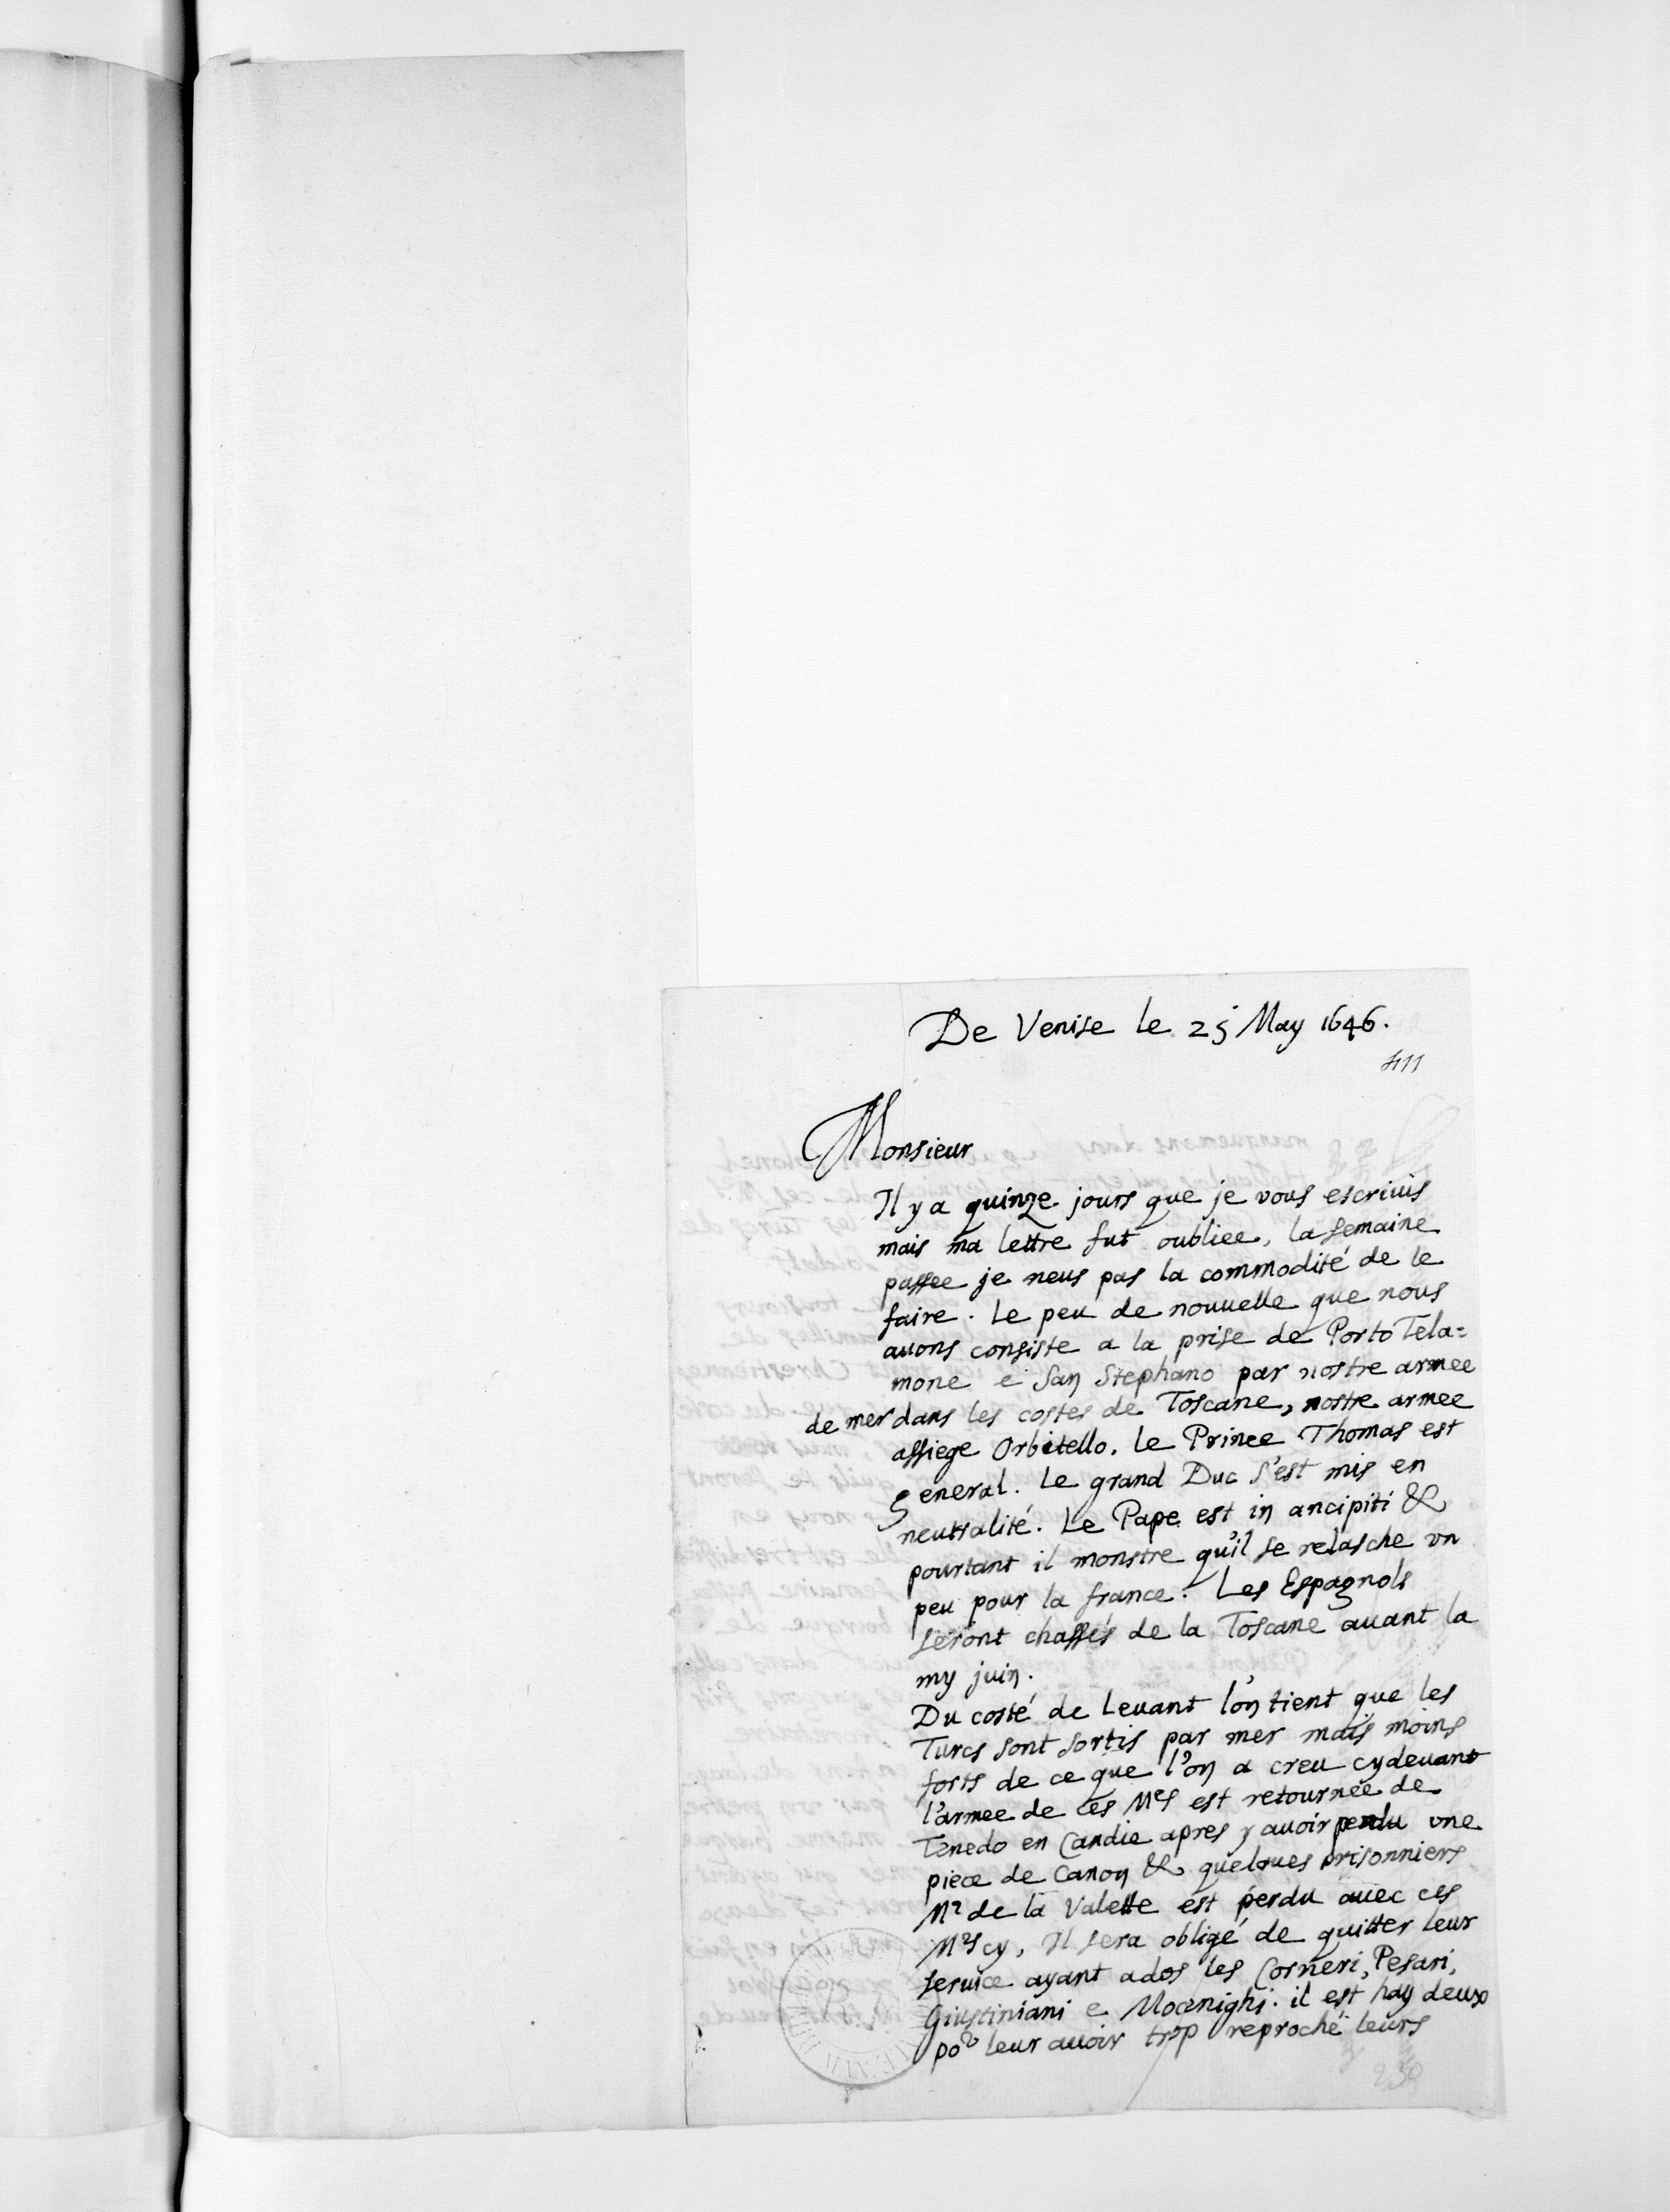 De Venise le 25 May 1646.
411
Monsieur
Il y a quinze jours que je vous escriuis
mais ma lettre fut oubliee, la semaine
passee je neus pas la commodité de le
faire. Le peu de nouuelle que nous
auons consiste a la prise de Porto Tela=
mone e San Stephano par nostre armee
de mer dans les costes de Toscane, nostre armee
assiege Orbitello. Le Prince Thomas est
general. Le grand Duc s'est mis en
neutralité. Le Pape est in ancipiti &
pourtant il monstre qu'il se relasche vn
peu pour la france. Les Espagnols
seront chassés de la Toscane auant la
my juin.
Du costé de Leuant l'on tient que les
Turcs sont sortis par mer mais moins
forts de ce que l'on a creu cydeuant
l'armee de ces Mrs est retournée de
Tenedo en Candie apres y auoir perdu vne
piece de Canon & quelques prisonniers
Mr de la Valette est perdu auec ces
Mrs cy, Il sera obligé de quitter leur
seruice ayant ados les Corneri, Pesari,
Giustiniani e Mocenighi. il est hay deux
por leur auoir trop reproché leurs